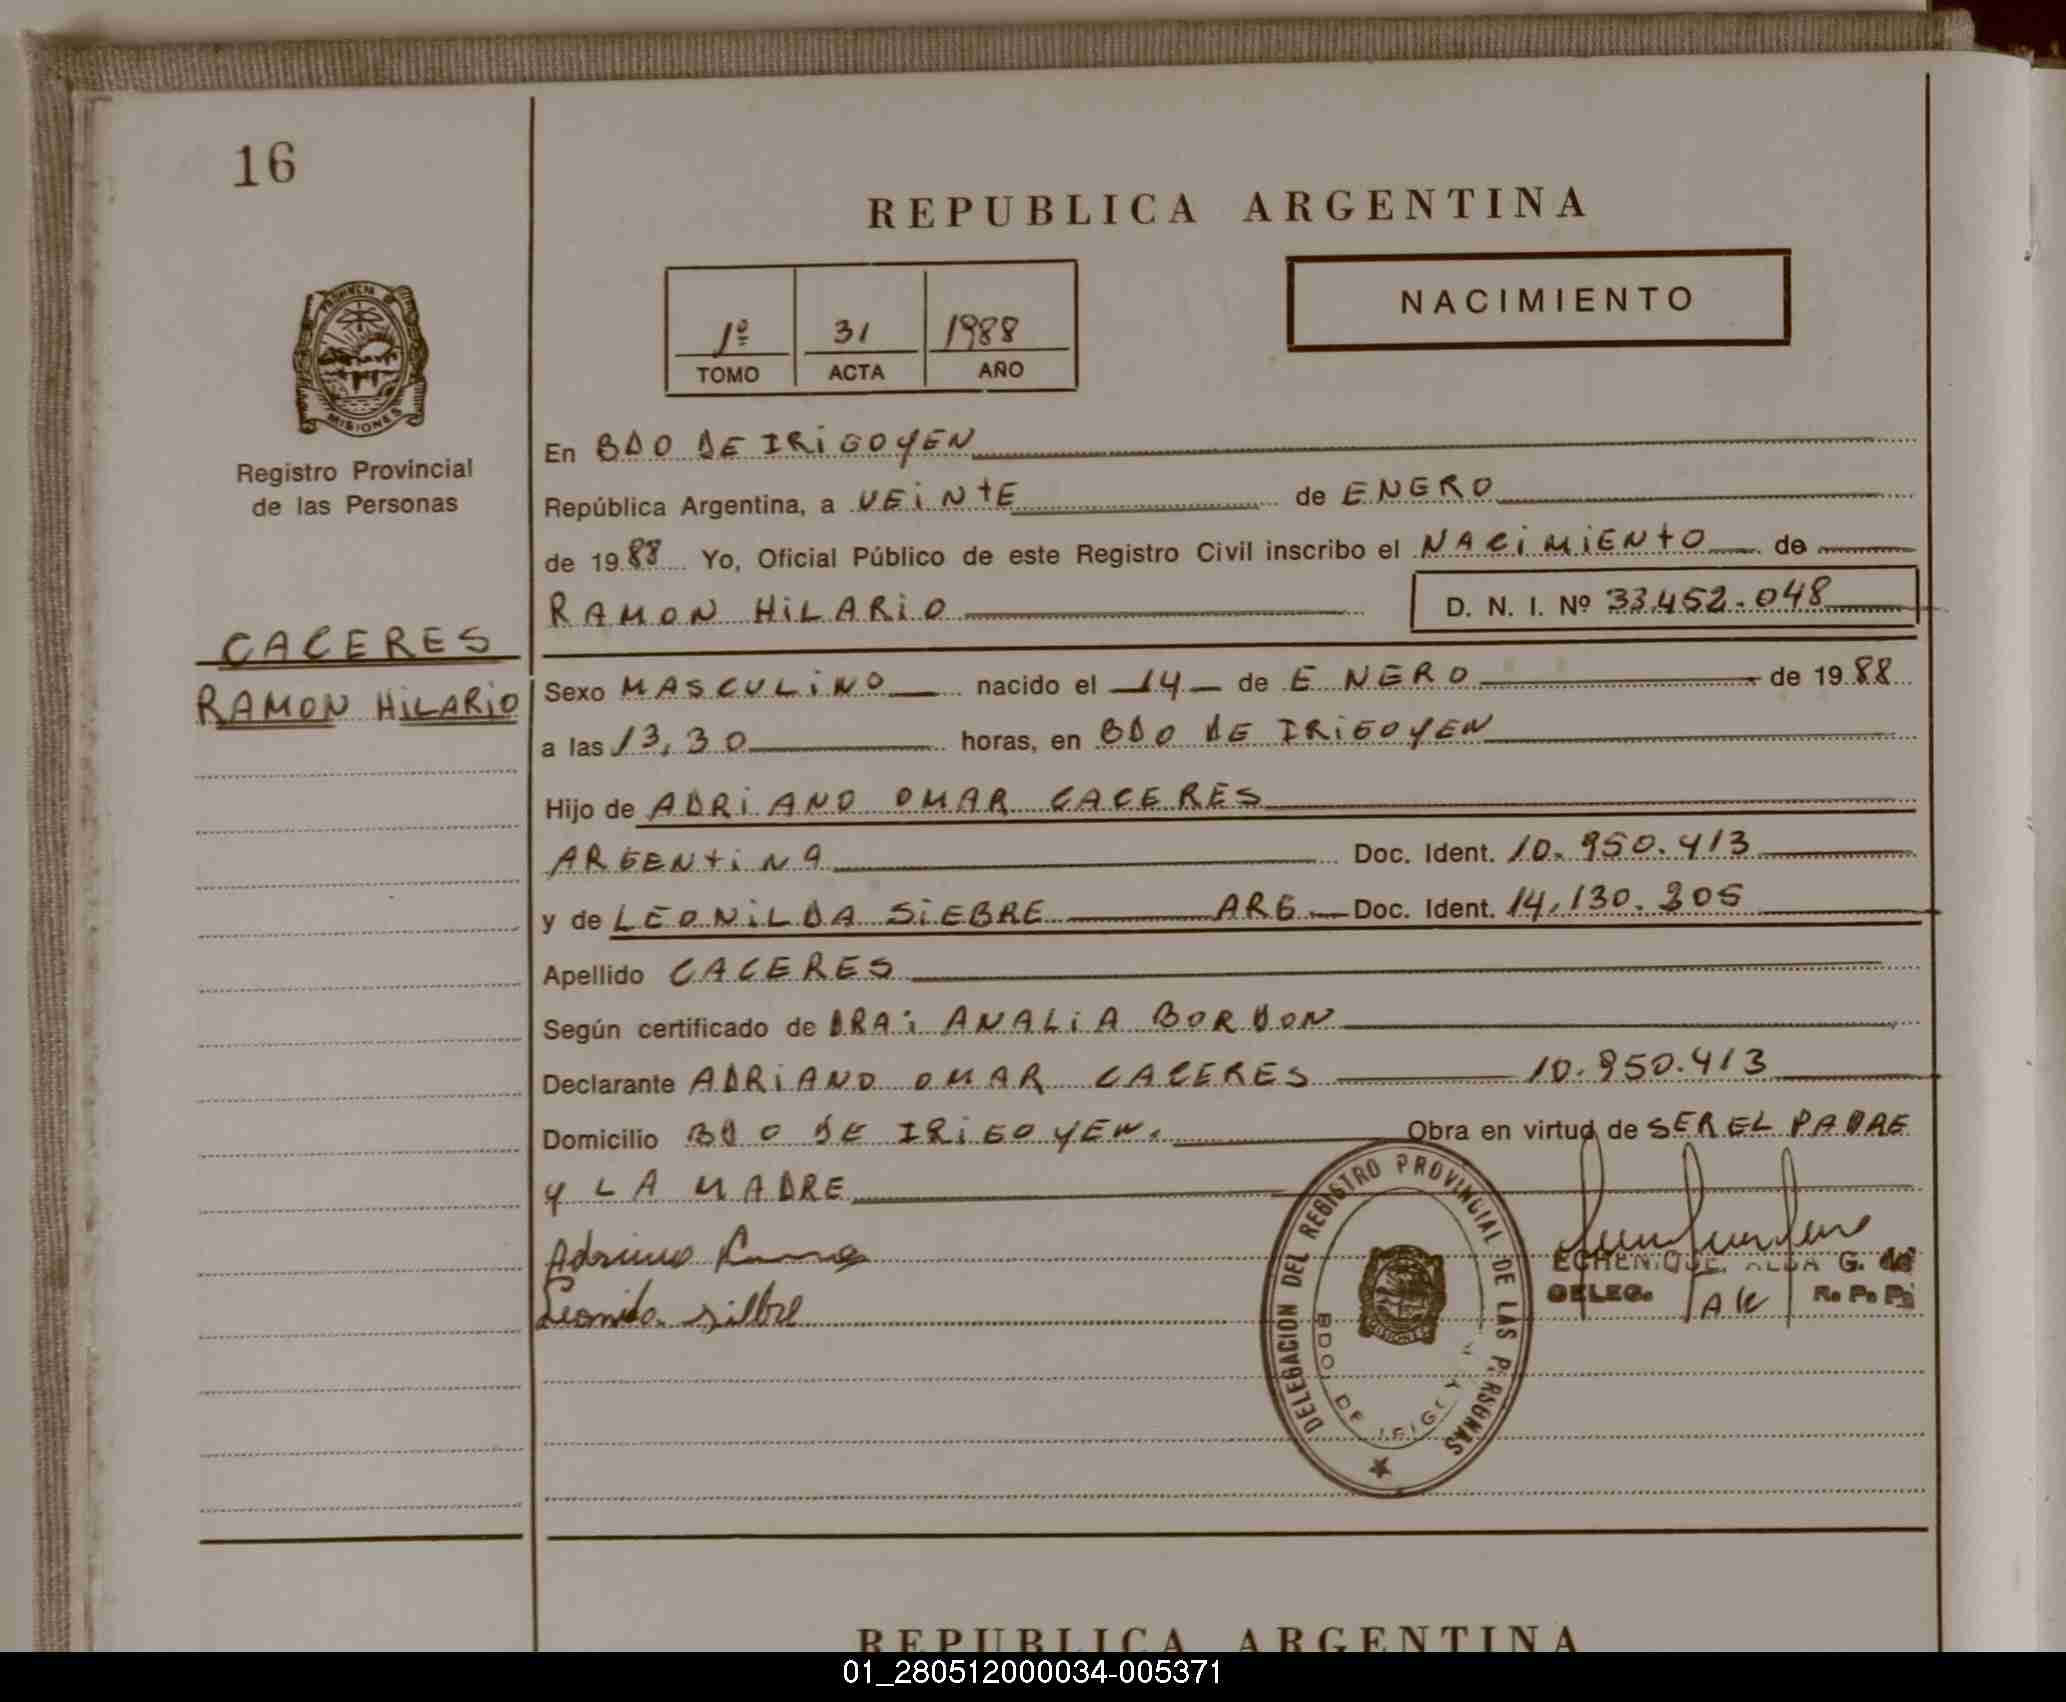 16
REPUBLICA ARGENTINA
NACIMIENTO
1º 31 1988
TOMO ACTA AÑO
PROVINCIA DE
MISIONES
Registro Provincial
de las Personas
CACERES
RAMON HiLARiO
En BDO DE IRiGOYEN
República Argentina, a VEiNtE de ENERO
de 1988 Yo, Oficial Público de este Registro Civil inscribo el NACiMiENtO de
RAMON HiLARiO D. N. I. Nº 33.452.048
Sexo MASCULiNO nacido el 14 de ENERO de 1988
a las 13,30 horas, en BDO DE IRiGOYEN
Hijo de ADRiANO OMAR CACERES
ARGENtiNA Doc. Ident. 10.950.413
y de LEONiLDA SiEBRE ARG Doc. Ident. 14.130.305
Apellido CACERES
Según certificado de DRA: ANALiA BORDON
Declarante ADRiANO OMAR CACERES 10.950.413
Domicilio BDO DE IRiGOYEN. Obra en virtud de SER EL PADRE
Y LA MADRE
DELEGACION DEL REGISTRO PROVINCIAL DE LAS PERSONAS
BDO. DE IRIGOYEN
MISIONES
ECHENIQUE, ALBA G. de
DELEG. R. P. P.
REPUBLICA ARGENTINA
01_280512000034-005371